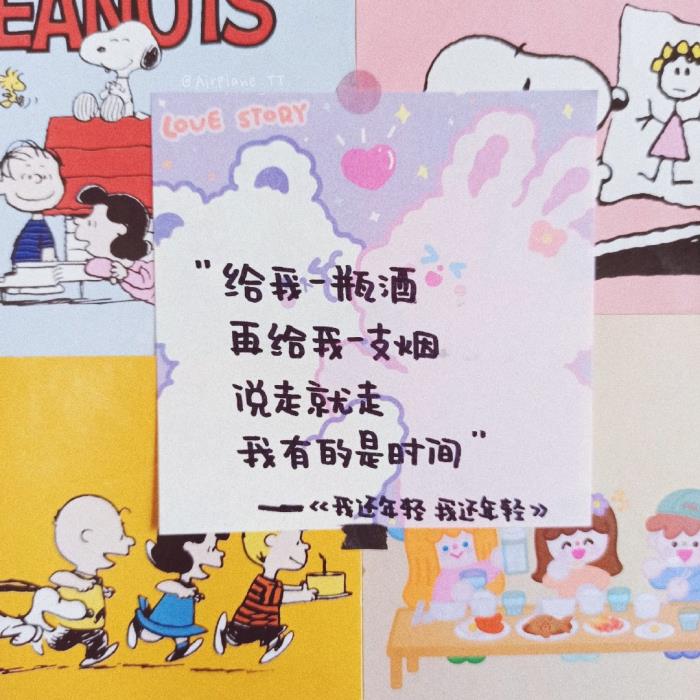 PEANUTS
@Airplane_TT
LOVE STORY
"给我一瓶酒
再给我一支烟
说走就走
我有的是时间"
——《我还年轻 我还年轻》